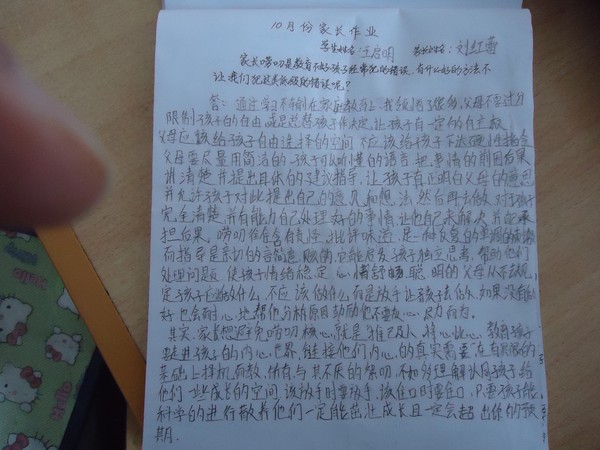 10月份家长作业
学生姓名:王启明 家长姓名:刘红莉
家长唠叨是教育不好孩子经常犯的错误,有什么好的方法不
让我们犯这类低级的错误呢?
答:通过学习不知到在家庭教育上,我知道了 父母不应过分
限制孩子的自由,或是总替孩子作决定,让孩子有一定的自主权
父母应该给孩子自由选择的空间 不应该给孩子下达硬性指令
父母要尽量用简洁的 孩子可以听懂的语言 把事情的前因后果
讲清楚 并提出具体的建议指导,让孩子真正明白父母的意思
并允许孩子对此提出自己的意见和想法,然后再去做 对于孩子
完全清楚,并有能力自己处理好的事情,让他自己去解决,并承
担后果,唠叨往往含有乱性,批评味道,是一种反复的单调的
而指导是亲切的言简意赅的,它能启发孩子独立思考,帮助他们
处理问题 使孩子情绪稳定 心情舒畅,聪明的父母从不去规
定孩子应该做什么,不应该做什么,而是放手让孩子去做,如果没有做
好 也会耐心地帮他分析原因 鼓励他不要灰心,尽力而为.
其实,家长想避免唠叨,核心就是推己及人,将心比心,教育孩子
要走进孩子的内心世界,链接他们内心的真实需要,在有限的
基础上择机而教,所有与其不厌的唠叨,不如多理解认同孩子给
他们一些成长的空间,该放手时要放手,该住口时要住口,只要孩子能
科学的进行教养他们一定能茁壮成长且一定会超出你的预
期.
Hello